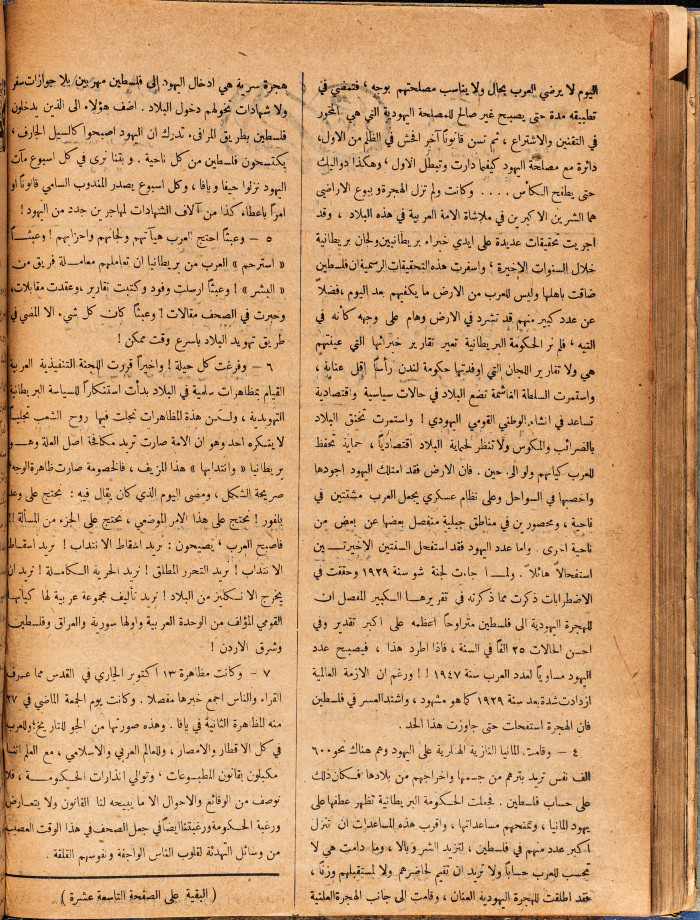 اليوم لا يرضي العرب بحال ولا يناسب مصلحتهم بوجه ، فتمضي في
تطبيقه مدة حتى يصبح غير صالح للمصلحة اليهودية التي هي المحور
في التقنين والاشتراع ، ثم تسن قانوناً آخر الحش في الظلم من الاول،
دائرة مع مصلحة اليهود كيفما دارت وتبطل الاول ، وهكذا دواليك
حتى يطفح الكأس .... وكانت ولم تزل الهجرة وبيوع الاراضي
هما الشرين الاكبرين في ملاشاة الامة العربية في هذه البلاد ، وقد
اجريت تحقيقات عديدة على ايدي خبراء بريطانيين ولجان بريطانية
خلال السنوات الاخيرة ، واسفرت هذه التحقيقات الرسمية ان فلسطين
ضاقت باهلها وليس للعرب من الارض ما يكفيهم بعد اليوم ، فضلاً
عن عدد كبير منهم قد تشرد في الارض وهام على وجهه كأنه في
التيه ، فلم نر الحكومة البريطانية تعير تقارير خبرائها التي عينتهم
هي ولا تقارير اللجان التي اوفدتها حكومة لندن رأساً اقل عناية ،
واستمرت السلطة الغاشمة تضع البلاد في حالات سياسية واقتصادية
تساعد في انشاء الوطني القومي اليهودي ! واستمرت تخنق البلاد
بالضرائب والمكوس ولا تنظر لحماية البلاد اقتصادياً ، حماية تحفظ
للعرب كيانهم ولو الى حين . فان الارض فقد امتلك اليهود اجودها
واخصبها في السواحل وعلى نظام عسكري يجعل العرب مشتتين في
ناحية ، ومحصورين في مناطق جبلية منفصل بعضها عن بعض من
ناحية اخرى . واما عدد اليهود فقد استفحل السنتين الاخيرتين
استفحالاً هائلاً . ولما جاءت لجنة شو سنة ١٩٢٩ وحققت في
الاضطرابات ذكرت مما ذكرته في تقريرها الكبير المفصل ان
للهجرة اليهودية الى فلسطين متراوحاً اعظمه على اكبر تقدير وفي
احسن الحالات ٢٥ الفاً في السنة ، فاذا اطرد هذا ، فيصبح عدد
اليهود مساوياً لعدد العرب سنة ١٩٤٧ !! ورغم ان الازمة العالمية
ازدادت شدة بعد سنة ١٩٢٩ كما هو مشهود ، واشتد العسر في فلسطين
فان الهجرة استفحلت حتى جاوزت هذا الحد .
٤ – وقامت المانيا النازية الهتلرية على اليهود وهم هناك نحو ٦٠٠
الف نفس تريد بترهم من جسمها واخراجهم من بلادها فكان ذلك
على حساب فلسطين . فجعلت الحكومة البريطانية تظهر عطفها على
يهود المانيا ، وتمنحهم مساعداتها ، واقرب هذه المساعدات ان تنزل
اكبر عدد منهم في فلسطين ، لتزيد الشر وبالا ، وما دامت هي لا
تحسب للعرب حساباً ولا تريد ان تقيم لحاضرهم ولا لمستقبلهم وزناً ،
فقد اطلقت للهجرة اليهودية العنان ، وقامت الى جانب الهجرة العلنية
هجرة سرية هي ادخال اليهود الى فلسطين مهربين بلا جوازات سفر
ولا شهادات تخولهم دخول البلاد . اضف هؤلاء الى الذين يدخلون
فلسطين بطريق المرافىء تدرك ان اليهود اصبحوا كالسيل الجارف ،
يكتسحون فلسطين من كل ناحية . وبتنا نرى في كل اسبوع مآت
اليهود نزلوا حيفا ويافا ، وكل اسبوع يصدر المندوب السامي قانوناً او
امراً باعطاء كذا من آلاف الشهادات لمهاجرين جدد من اليهود !
٥ – وعبثاً احتج العرب هيآتهم ولجانهم واحزابهم ! وعبثاً
« استرحم » العرب من بريطانيا ان تعاملهم معاملة فريق من
« البشر » ! وعبثاً ارسلت وفود وكتبت تقارير ، وعقدت مقابلات ،
وحبرت في الصحف مقالات ! وعبثاً كان كل شيء الا المضي في
طريق تهويد البلاد باسرع وقت ممكن !
٦ – وفرغت كل حيلة ! واخيراً قررت اللجنة التنفيذية العربية
القيام بمظاهرات سلمية في البلاد بدأت استنكاراً للسياسة البريطانية
التهويدية ، ولكن هذه المظاهرات تجلت فيها روح الشعب تجلياً
لا ينكره احد وهو ان الامة صارت تريد مكافحة اصل العلة وهو
بريطانيا « وانتدابها » هذا المزيف ، فالخصومة صارت ظاهرة الوجه
صريحة الشكل ، ومضى اليوم الذي كان يقال فيه : نحتج على وعد
بلفور ! نحتج على هذا الامر الموضعي ، نحتج على الجزء من المسألة !!
فاصبح العرب ، يصيحون : نريد اسقاط الانتداب ! نريد اسقاط
الانتداب ! نريد التحرر المطلق ! نريد الحرية الكاملة ! نريد ان
يخرج الانكليز من البلاد ! نريد تأليف مجموعة عربية لها كيانها
القومي المؤلف من الوحدة العربية واولها سورية والعراق وفلسطين
وشرق الاردن !
٧ – وكانت مظاهرة ١٣ اكتوبر الجاري في القدس مما عرف
القراء والناس اجمع خبرها مفصلا . وكانت يوم الجمعة الماضي في ٢٧
منه المظاهرة الثانية في يافا . وهذه صورتها من الجو للتاريخ وللعرب
في كل الاقطار والامصار ، وللعالم العربي والاسلامي ، مع العلم اننا
مكبلون بقانون المطبوعات ، وتوالي انذارات الحكومة ، فلا
نوصف من الوقائع والاحوال الا ما يبيحه لنا القانون ولا يتعارض
ورغبة الحكومة ورغبتنا ايضاً في جعل الصحف في هذا الوقت العصيب
من وسائل التهدئة لقلوب الناس الواجفة ونفوسهم القلقة .
( البقية على الصفحة التاسعة عشرة )